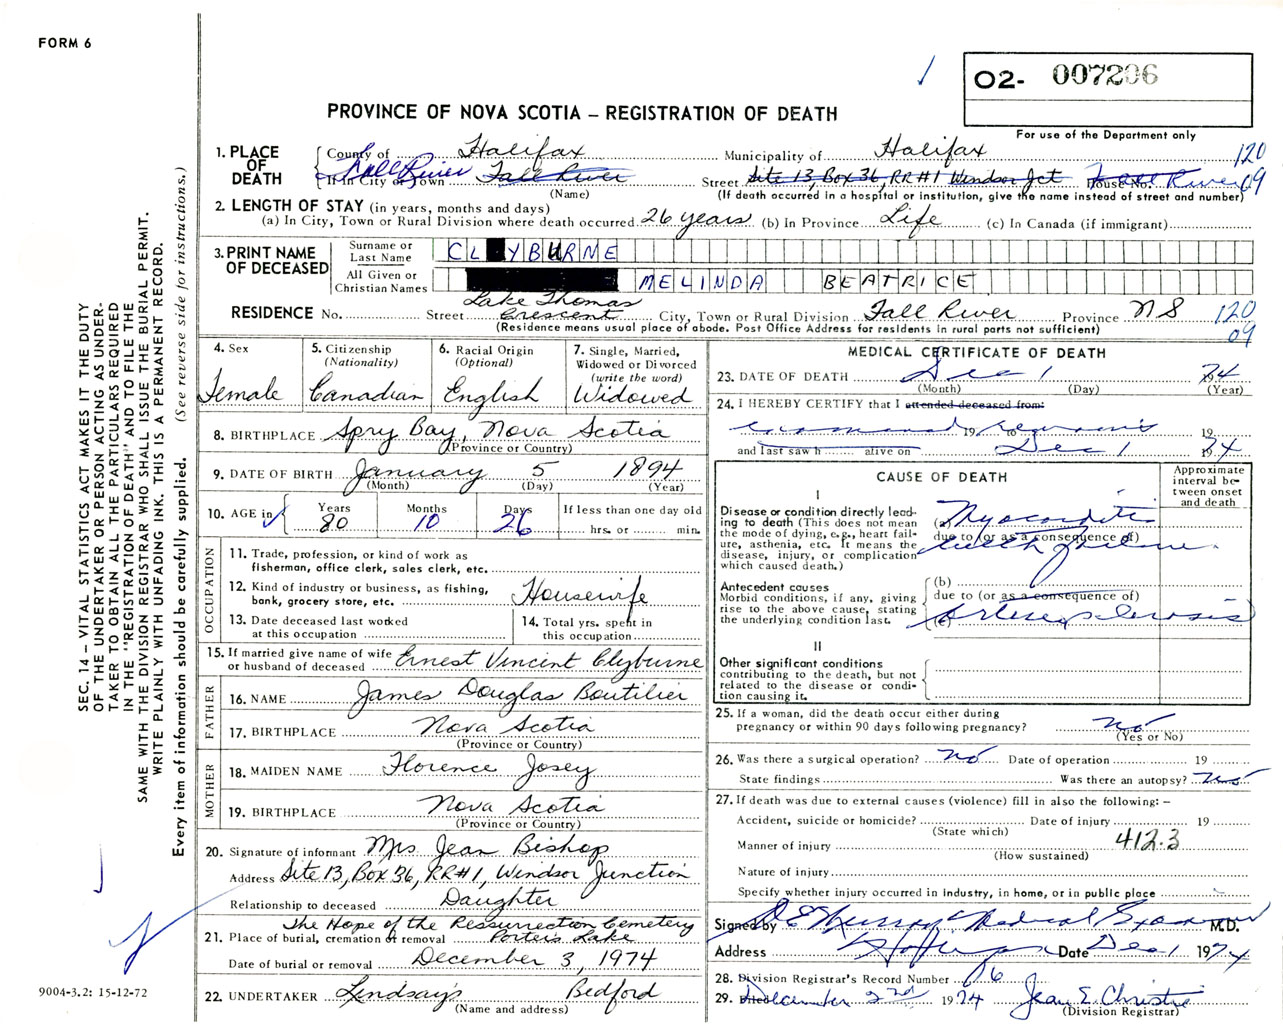 FORM 6
O2- 007206
PROVINCE OF NOVA SCOTIA – REGISTRATION OF DEATH
For use of the Department only
1. PLACE OF DEATH
County of Halifax Municipality of Halifax 120
Fall River
If in City or Town Fall River Street Site 13, Box 36, RR#1 Windsor Jct House No. Fall River 09
(Name) (If death occurred in a hospital or institution, give the name instead of street and number)
2. LENGTH OF STAY (in years, months and days)
(a) In City, Town or Rural Division where death occurred 26 years (b) In Province Life (c) In Canada (if immigrant)
3. PRINT NAME OF DECEASED
Surname or Last Name CL YBURNE
All Given or Christian Names MELINDA BEATRICE
RESIDENCE No. Street Lake Thomas Crescent City, Town or Rural Division Fall River Province N S 120
(Residence means usual place of abode. Post Office Address for residents in rural parts not sufficient) 09
4. Sex Female
5. Citizenship (Nationality) Canadian
6. Racial Origin (Optional) English
7. Single, Married, Widowed or Divorced (write the word) Widowed
8. BIRTHPLACE Spry Bay, Nova Scotia
(Province or Country)
9. DATE OF BIRTH January 5 1894
(Month) (Day) (Year)
10. AGE in Years 80 Months 10 Days 26 If less than one day old hrs. or min.
OCCUPATION
11. Trade, profession, or kind of work as fisherman, office clerk, sales clerk, etc.
12. Kind of industry or business, as fishing, bank, grocery store, etc. Housewife
13. Date deceased last worked at this occupation
14. Total yrs. spent in this occupation
15. If married give name of wife or husband of deceased Ernest Vincent Clyburne
FATHER
16. NAME James Douglas Boutilier
17. BIRTHPLACE Nova Scotia
(Province or Country)
MOTHER
18. MAIDEN NAME Florence Josey
19. BIRTHPLACE Nova Scotia
(Province or Country)
20. Signature of informant Mrs. Jean Bishop
Address Site 13, Box 36, RR#1, Windsor Junction
Relationship to deceased Daughter
The Hope of the Ressurrection Cemetery
21. Place of burial, cremation or removal Porters Lake
Date of burial or removal December 3, 1974
22. UNDERTAKER Lindsay's Bedford
(Name and address)
MEDICAL CERTIFICATE OF DEATH
23. DATE OF DEATH Dec 1 1974
(Month) (Day) (Year)
24. I HEREBY CERTIFY that I attended deceased from:
examined 19 to remains 19
and last saw h alive on Dec 1 1974
CAUSE OF DEATH
Approximate interval between onset and death
I
Disease or condition directly leading to death (This does not mean the mode of dying, e.g., heart failure, asthenia, etc. It means the disease, injury, or complication which caused death.)
(a) Myocarditis
due to (or as a consequence of)
with failure
Antecedent causes
Morbid conditions, if any, giving rise to the above cause, stating the underlying condition last.
(b)
due to (or as a consequence of)
(c) Arteriosclerosis
II
Other significant conditions contributing to the death, but not related to the disease or condition causing it.
25. If a woman, did the death occur either during pregnancy or within 90 days following pregnancy? no
(Yes or No)
26. Was there a surgical operation? no Date of operation 19
State findings Was there an autopsy? no
27. If death was due to external causes (violence) fill in also the following: –
Accident, suicide or homicide? Date of injury 19
(State which)
Manner of injury 412.3
(How sustained)
Nature of injury
Specify whether injury occurred in industry, in home, or in public place
Signed by Murray Medical Examiner M.D.
Address Date Dec 1 1974
28. Division Registrar's Record Number 86
29. Filed December 2nd 1974 Jean E. Christie
(Division Registrar)
SEC. 14 – VITAL STATISTICS ACT MAKES IT THE DUTY
OF THE UNDERTAKER OR PERSON ACTING AS UNDER-
TAKER TO OBTAIN ALL THE PARTICULARS REQUIRED
IN THE "REGISTRATION OF DEATH" AND TO FILE THE
SAME WITH THE DIVISION REGISTRAR WHO SHALL ISSUE THE BURIAL PERMIT.
WRITE PLAINLY WITH UNFADING INK. THIS IS A PERMANENT RECORD.
Every item of information should be carefully supplied. (See reverse side for instructions.)
9004-3.2: 15-12-72